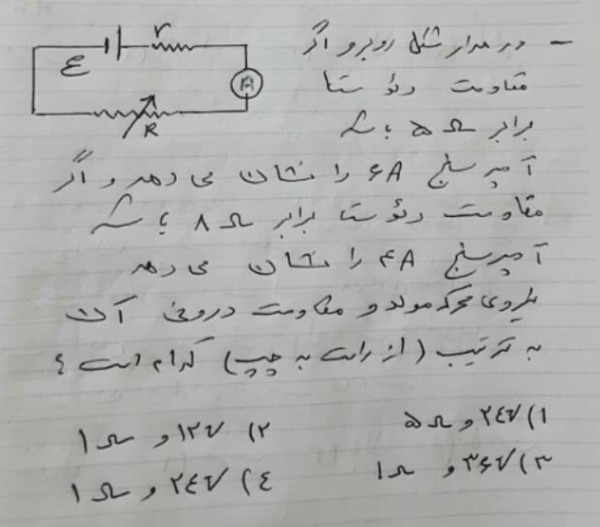 ε r A R
– در مدار شکل روبرو اگر
مقاومت رئوستا
برابر ۵Ω باشد
آمپرسنج ۶A را نشان می دهد و اگر
مقاومت رئوستا برابر ۸Ω باشد
آمپرسنج ۴A را نشان می دهد
نیروی محرکه مولد و مقاومت درونی آن
به ترتیب (از راست به چپ) کدام است ؟
۱) ۲۴V و ۵Ω ۲) ۱۲V و ۱Ω
۳) ۳۶V و ۱Ω ۴) ۲۴V و ۱Ω